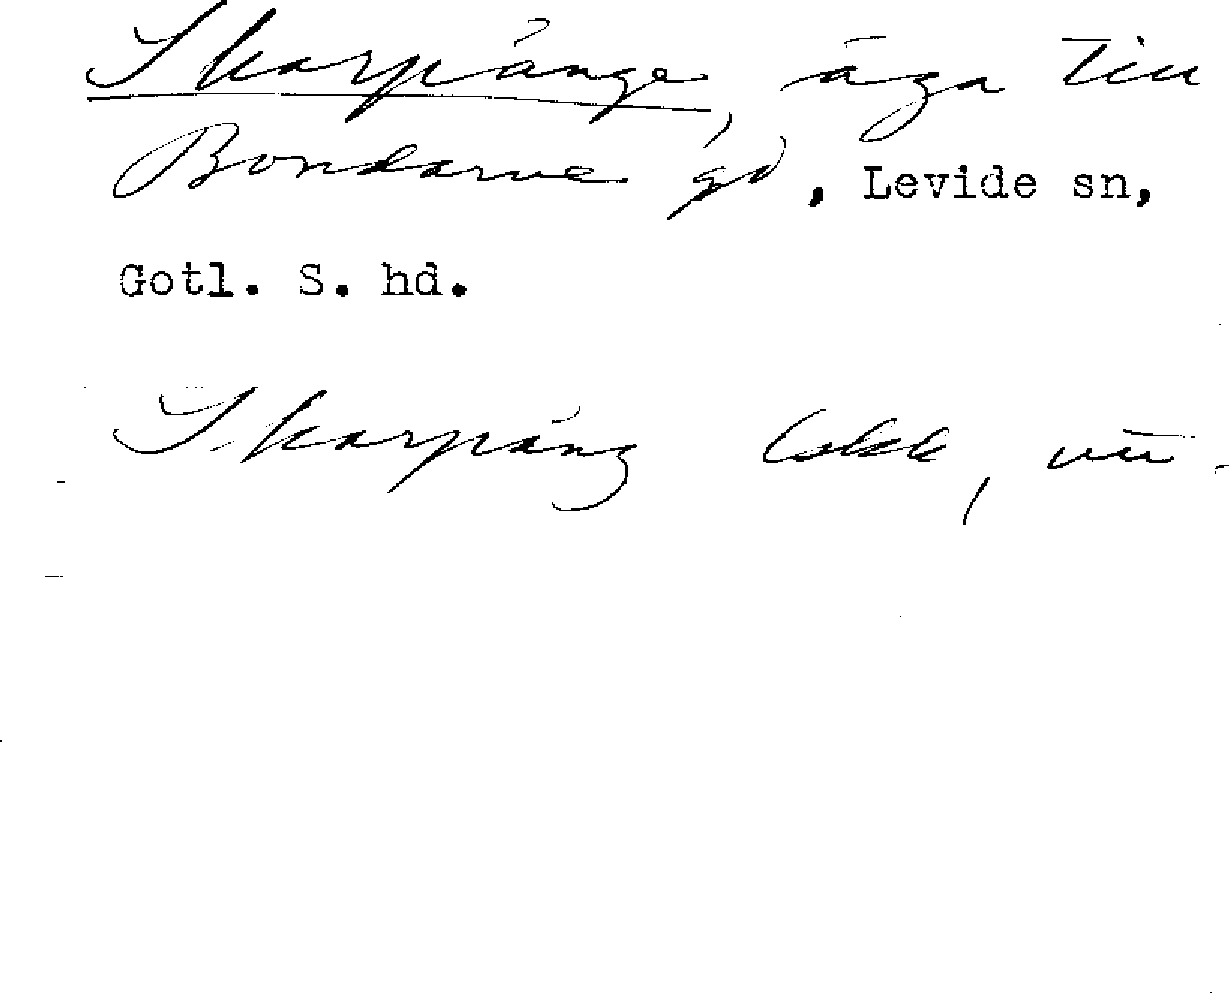 Skarpänge, äga till
Bondarve gd, Levide sn,
Gotl. S. hd.
Skarpäng Eskk,